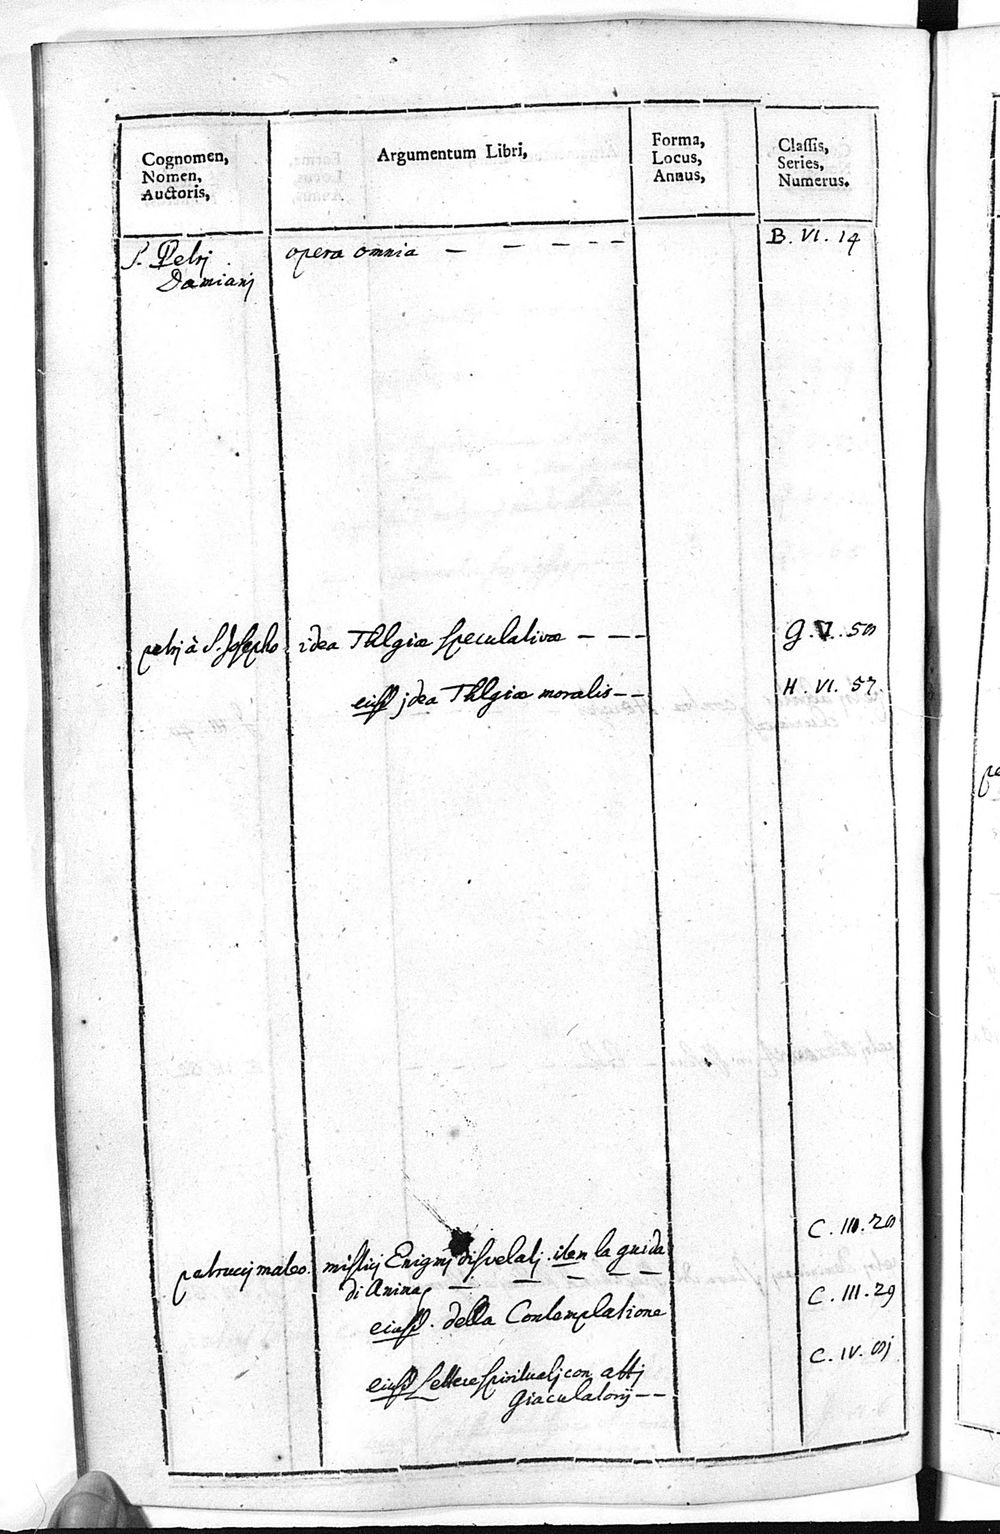 Cognomen,
Nomen,
Auctoris,
Argumentum Libri,
Forma,
Locus,
Annus,
Classis,
Series,
Numerus.
S. Petrj
Damianj
opera omnia — — — - -
B. VI. 14
petrj à S. Josepho
idea Thlgiæ speculativæ — — —
G. V. 50
eiusd jdea Thlgiæ moralis — —
H. VI. 57.
petruccij mateo.
mistici Enigmj disvelatj. item la guida
di Anima — — — — —
C. III. 20
eiusd. della Contemplatione
C. III. 29
eiusd Lettere spiritualj con attj
Giaculatorij — —
C. IV.